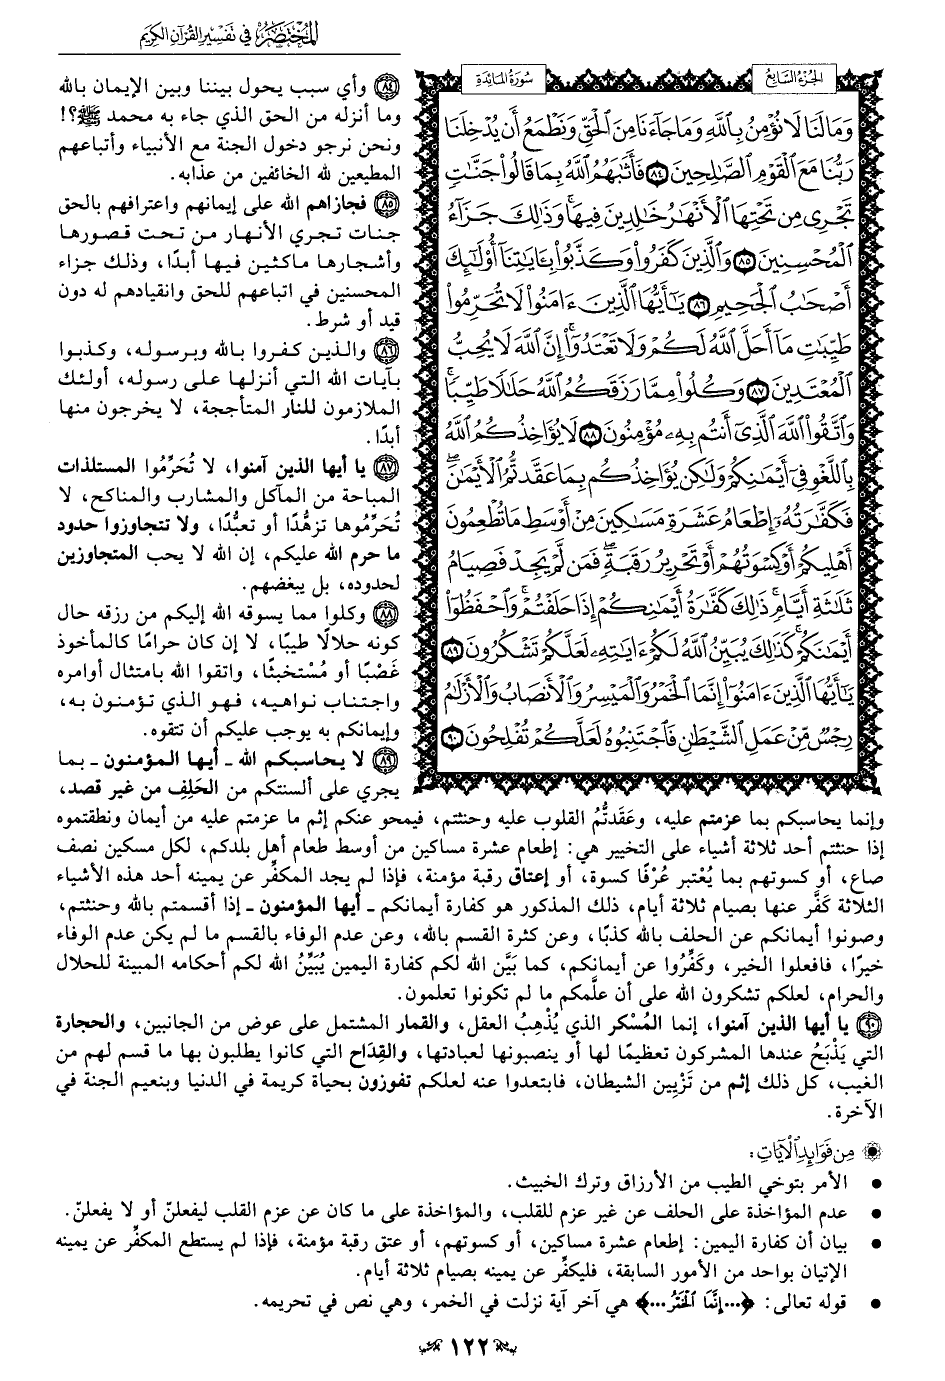 المختصر في تفسير القرآن الكريم
الجزء السابع
سورة المائدة
وَمَا لَنَا لَا نُؤْمِنُ بِٱللَّهِ وَمَا جَآءَنَا مِنَ ٱلْحَقِّ وَنَطْمَعُ أَن يُدْخِلَنَا
رَبُّنَا مَعَ ٱلْقَوْمِ ٱلصَّٰلِحِينَ ٨٤ فَأَثَٰبَهُمُ ٱللَّهُ بِمَا قَالُوا۟ جَنَّٰتٍ
تَجْرِى مِن تَحْتِهَا ٱلْأَنْهَٰرُ خَٰلِدِينَ فِيهَا ۚ وَذَٰلِكَ جَزَآءُ
ٱلْمُحْسِنِينَ ٨٥ وَٱلَّذِينَ كَفَرُوا۟ وَكَذَّبُوا۟ بِـَٔايَٰتِنَآ أُو۟لَٰٓئِكَ
أَصْحَٰبُ ٱلْجَحِيمِ ٨٦ يَٰٓأَيُّهَا ٱلَّذِينَ ءَامَنُوا۟ لَا تُحَرِّمُوا۟
طَيِّبَٰتِ مَآ أَحَلَّ ٱللَّهُ لَكُمْ وَلَا تَعْتَدُوٓا۟ ۚ إِنَّ ٱللَّهَ لَا يُحِبُّ
ٱلْمُعْتَدِينَ ٨٧ وَكُلُوا۟ مِمَّا رَزَقَكُمُ ٱللَّهُ حَلَٰلًا طَيِّبًا ۚ
وَٱتَّقُوا۟ ٱللَّهَ ٱلَّذِىٓ أَنتُم بِهِۦ مُؤْمِنُونَ ٨٨ لَا يُؤَاخِذُكُمُ ٱللَّهُ
بِٱللَّغْوِ فِىٓ أَيْمَٰنِكُمْ وَلَٰكِن يُؤَاخِذُكُم بِمَا عَقَّدتُّمُ ٱلْأَيْمَٰنَ ۖ
فَكَفَّٰرَتُهُۥٓ إِطْعَامُ عَشَرَةِ مَسَٰكِينَ مِنْ أَوْسَطِ مَا تُطْعِمُونَ
أَهْلِيكُمْ أَوْ كِسْوَتُهُمْ أَوْ تَحْرِيرُ رَقَبَةٍ ۖ فَمَن لَّمْ يَجِدْ فَصِيَامُ
ثَلَٰثَةِ أَيَّامٍ ۚ ذَٰلِكَ كَفَّٰرَةُ أَيْمَٰنِكُمْ إِذَا حَلَفْتُمْ ۚ وَٱحْفَظُوٓا۟
أَيْمَٰنَكُمْ ۚ كَذَٰلِكَ يُبَيِّنُ ٱللَّهُ لَكُمْ ءَايَٰتِهِۦ لَعَلَّكُمْ تَشْكُرُونَ ٨٩
يَٰٓأَيُّهَا ٱلَّذِينَ ءَامَنُوٓا۟ إِنَّمَا ٱلْخَمْرُ وَٱلْمَيْسِرُ وَٱلْأَنصَابُ وَٱلْأَزْلَٰمُ
رِجْسٌ مِّنْ عَمَلِ ٱلشَّيْطَٰنِ فَٱجْتَنِبُوهُ لَعَلَّكُمْ تُفْلِحُونَ ٩٠
٨٤ وأي سبب يحول بيننا وبين الإيمان بالله
وما أنزله من الحق الذي جاء به محمد ﷺ؟!
ونحن نرجو دخول الجنة مع الأنبياء وأتباعهم
المطيعين لله الخائفين من عذابه.
٨٥ فجازاهم الله على إيمانهم واعترافهم بالحق
جنات تجري الأنهار من تحت قصورها
وأشجارها ماكثين فيها أبدًا، وذلك جزاء
المحسنين في اتباعهم للحق وانقيادهم له دون
قيد أو شرط.
٨٦ والذين كفروا بالله وبرسوله، وكذبوا
بآيات الله التي أنزلها على رسوله، أولئك
الملازمون للنار المتأججة، لا يخرجون منها
أبدًا.
٨٧ يا أيها الذين آمنوا، لا تُحَرِّمُوا المستلذات
المباحة من المآكل والمشارب والمناكح، لا
تُحَرِّمُوها تزهُّدًا أو تعبُّدًا، ولا تتجاوزوا حدود
ما حرم الله عليكم، إن الله لا يحب المتجاوزين
لحدوده، بل يبغضهم.
٨٨ وكلوا مما يسوقه الله إليكم من رزقه حال
كونه حلالًا طيبًا، لا إن كان حرامًا كالمأخوذ
غَصْبًا أو مُسْتخبثًا، واتقوا الله بامتثال أوامره
واجتناب نواهيه، فهو الذي تؤمنون به،
وإيمانكم به يوجب عليكم أن تتقوه.
٨٩ لا يحاسبكم الله ـ أيها المؤمنون ـ بما
يجري على ألسنتكم من الحَلِف من غير قصد،
وإنما يحاسبكم بما عزمتم عليه، وعَقَدتُّمُ القلوب عليه وحنثتم، فيمحو عنكم إثم ما عزمتم عليه من أيمان ونطقتموه
إذا حنثتم أحد ثلاثة أشياء على التخيير هي: إطعام عشرة مساكين من أوسط طعام أهل بلدكم، لكل مسكين نصف
صاع، أو كسوتهم بما يُعْتبر عُرْفًا كسوة، أو إعتاق رقبة مؤمنة، فإذا لم يجد المكفِّر عن يمينه أحد هذه الأشياء
الثلاثة كَفَّر عنها بصيام ثلاثة أيام، ذلك المذكور هو كفارة أيمانكم ـ أيها المؤمنون ـ إذا أقسمتم بالله وحنثتم،
وصونوا أيمانكم عن الحلف بالله كذبًا، وعن كثرة القسم بالله، وعن عدم الوفاء بالقسم ما لم يكن عدم الوفاء
خيرًا، فافعلوا الخير، وكَفِّرُوا عن أيمانكم، كما بَيَّن الله لكم كفارة اليمين يُبَيِّنُ الله لكم أحكامه المبينة للحلال
والحرام، لعلكم تشكرون الله على أن علَّمكم ما لم تكونوا تعلمون.
٩٠ يا أيها الذين آمنوا، إنما المُسْكر الذي يُذْهِبُ العقل، والقمار المشتمل على عوض من الجانبين، والحجارة
التي يَذْبَحُ عندها المشركون تعظيمًا لها أو ينصبونها لعبادتها، والقِدَاح التي كانوا يطلبون بها ما قسم لهم من
الغيب، كل ذلك إثم من تَزْيِين الشيطان، فابتعدوا عنه لعلكم تفوزون بحياة كريمة في الدنيا وبنعيم الجنة في
الآخرة.
من فوائد الآيات:
• الأمر بتوخي الطيب من الأرزاق وترك الخبيث.
• عدم المؤاخذة على الحلف عن غير عزم للقلب، والمؤاخذة على ما كان عن عزم القلب ليفعلنّ أو لا يفعلنّ.
• بيان أن كفارة اليمين: إطعام عشرة مساكين، أو كسوتهم، أو عتق رقبة مؤمنة، فإذا لم يستطع المكفِّر عن يمينه
الإتيان بواحد من الأمور السابقة، فليكفِّر عن يمينه بصيام ثلاثة أيام.
• قوله تعالى: ﴿...إِنَّمَا ٱلْخَمْرُ...﴾ هي آخر آية نزلت في الخمر، وهي نص في تحريمه.
١٢٢